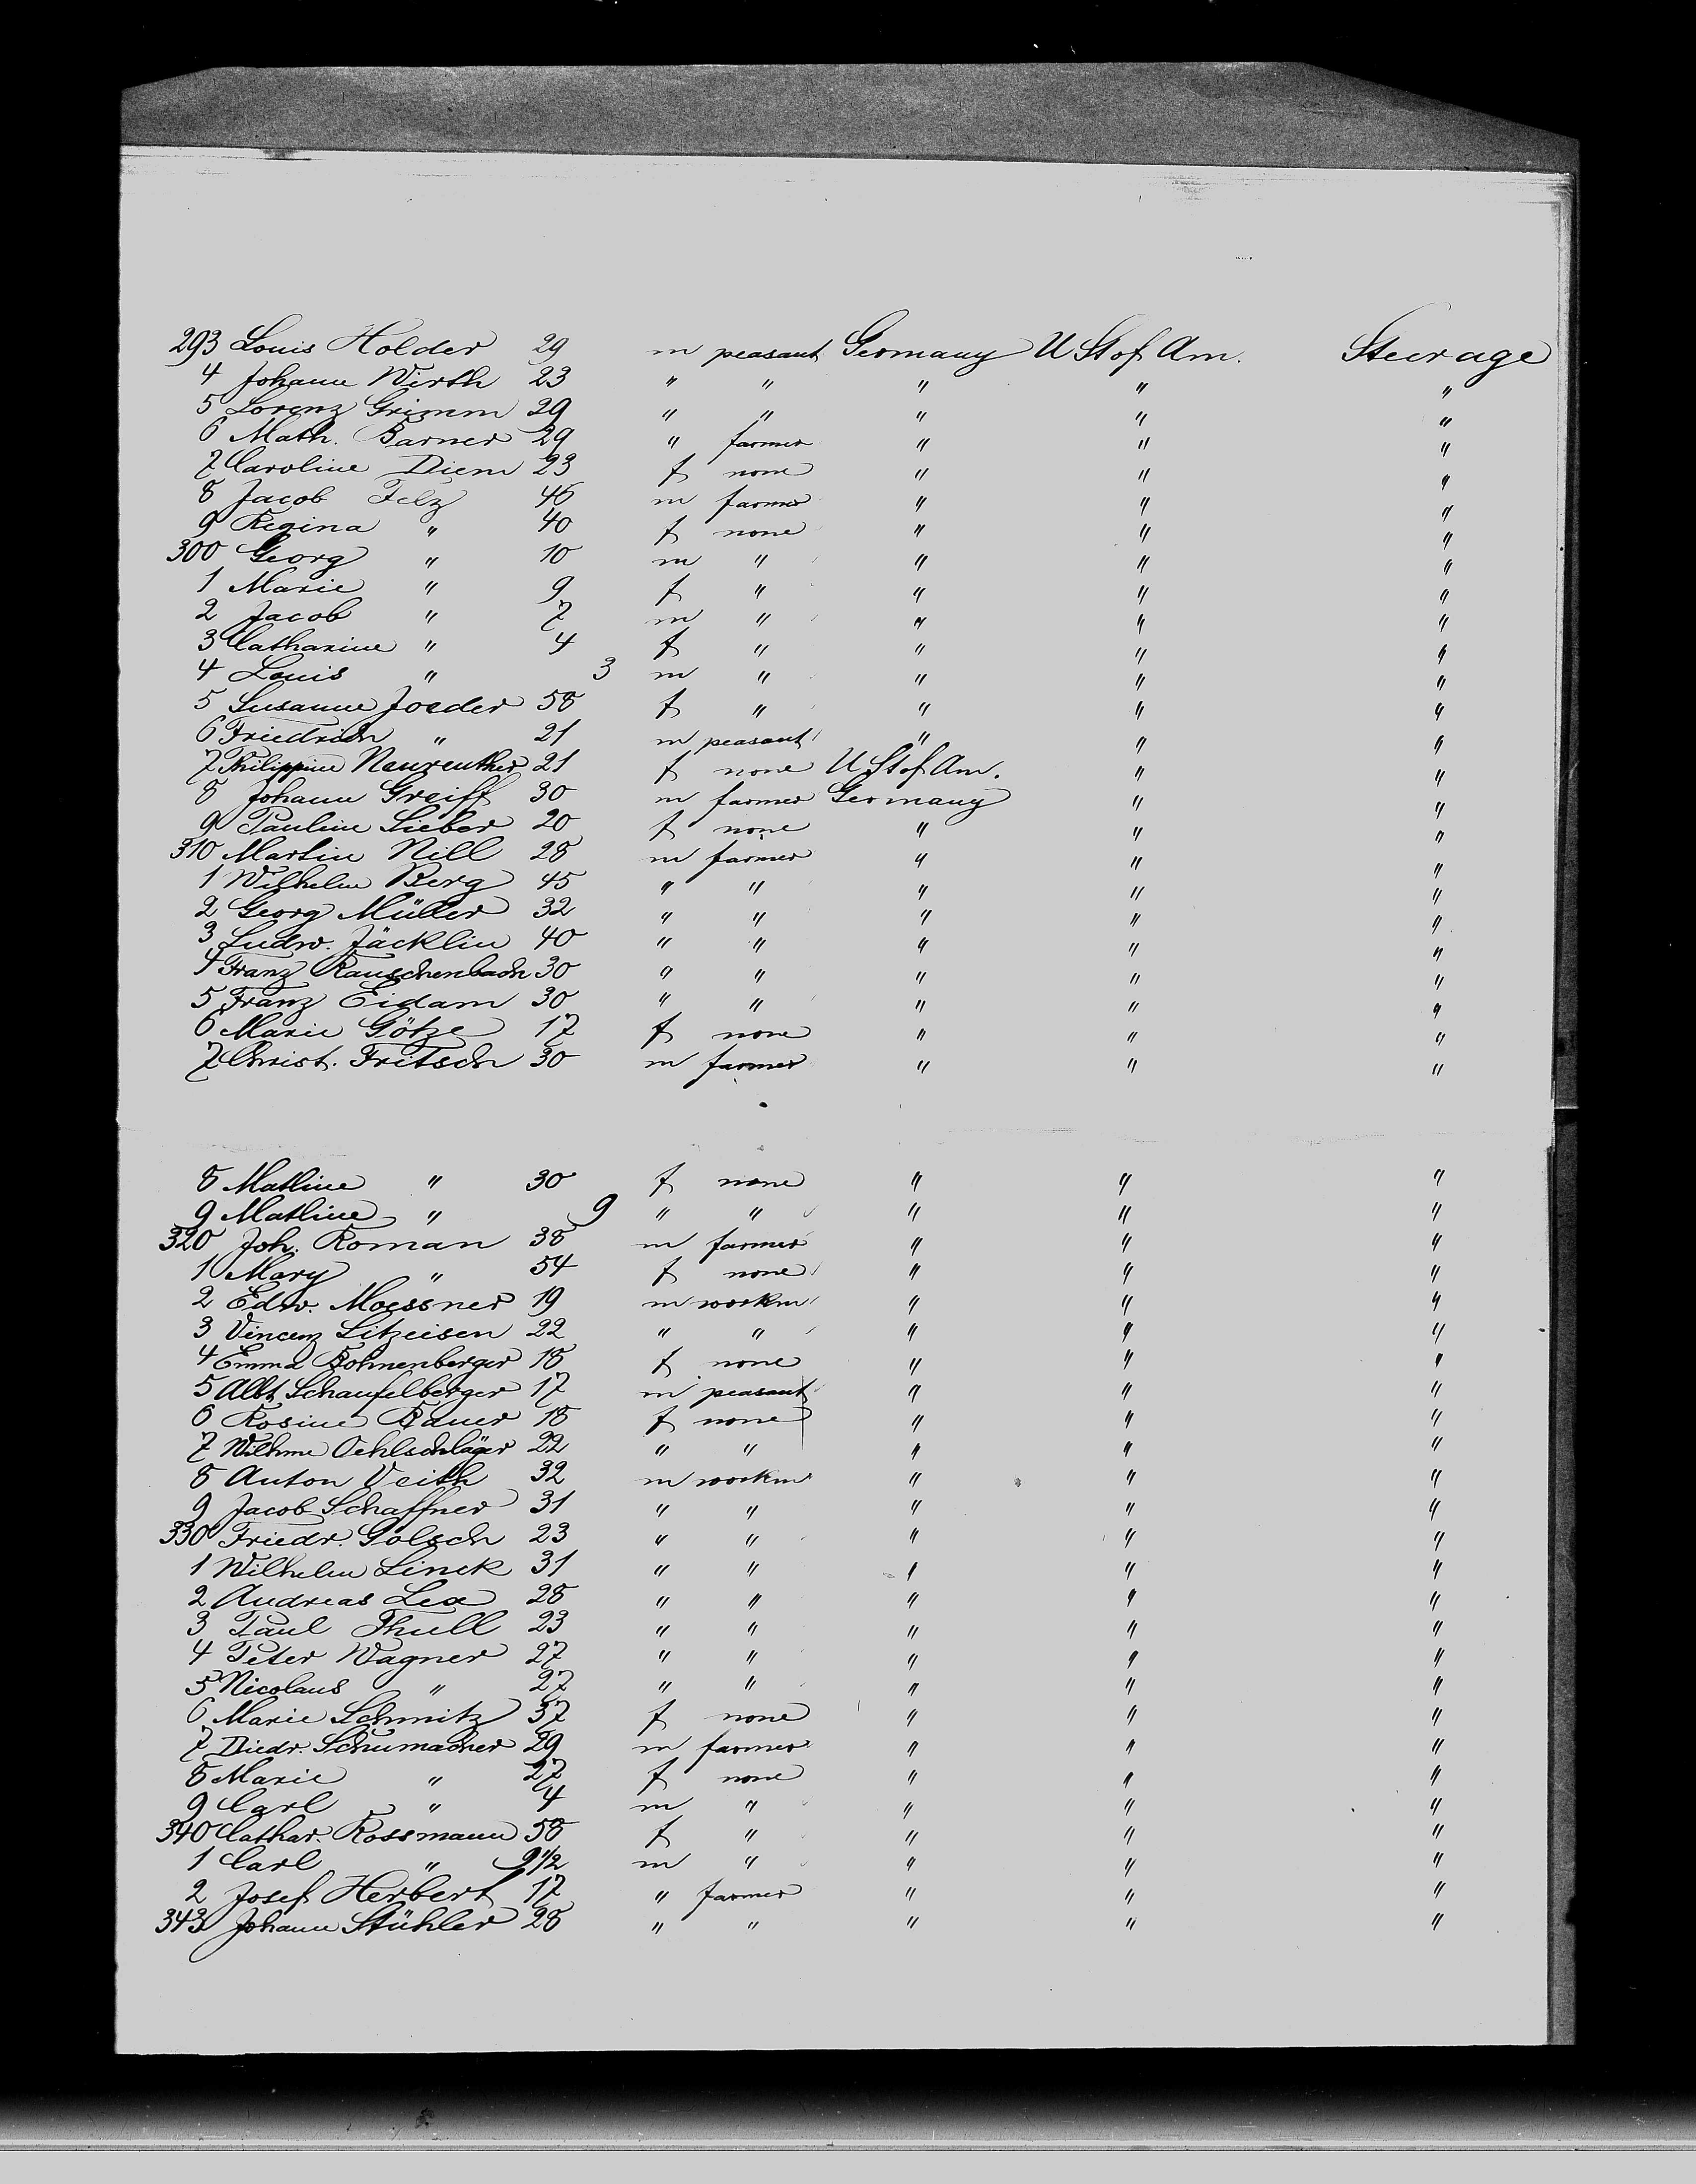 293 Louis Holder 29 m peasant Germany U St of Am. Steerage
4 Johann Wirth 23 " " " " "
5 Lorenz Grimm 29 " " " " "
6 Math. Barner 29 " farmer " " "
7 Caroline Diem 23 f none " " "
8 Jacob Felz 46 m farmer " " "
9 Regina " 40 f none " " "
300 Georg " 10 m " " " "
1 Marie " 9 f " " " "
2 Jacob " 7 m " " " "
3 Catharine " 4 f " " " "
4 Louis " 3 m " " " "
5 Susanne Joeder 58 f " " " "
6 Friedrich " 21 m peasant " " "
7 Philippine Neureuther 21 f none U St of Am. " "
8 Johann Greiff 30 m farmer Germany " "
9 Pauline Sieber 20 f none " " "
310 Martin Nill 28 m farmer " " "
1 Wilhelm Berg 45 " " " " "
2 Georg Müller 32 " " " " "
3 Ludw. Jäcklin 40 " " " " "
4 Franz Rauschenbach 30 " " " " "
5 Franz Eidam 30 " " " " "
6 Marie Götze 17 f none " " "
7 Christ. Fritsch 30 m farmer " " "
8 Mathine " 30 f none " " "
9 Mathine " 9 " " " " "
320 Joh. Roman 38 m farmer " " "
1 Mary " 54 f none " " "
2 Edw. Moessner 19 m workm " " "
3 Vincenz Litzeisen 22 " " " " "
4 Emma Bohnenberger 18 f none " " "
5 Albt Schaufelberger 17 m peasant " " "
6 Rosine Bauer 18 f none " " "
7 Wilhme Oehlschläger 22 " " " " "
8 Anton Veith 32 m workm " " "
9 Jacob Schaffner 31 " " " " "
330 Friedr. Golsch 23 " " " " "
1 Wilhelm Linck 31 " " " " "
2 Andreas Lex 28 " " " " "
3 Paul Thull 23 " " " " "
4 Peter Wagner 27 " " " " "
5 Nicolaus " 27 " " " " "
6 Marie Schmitz 37 f none " " "
7 Diedr. Schumacher 29 m farmer " " "
8 Marie " 27 f none " " "
9 Carl " 4 m " " " "
340 Cathar. Rossmann 58 f " " " "
1 Carl " 9 1/2 m " " " "
2 Josef Herbert 17 " farmer " " "
343 Johann Stühler 28 " " " " "